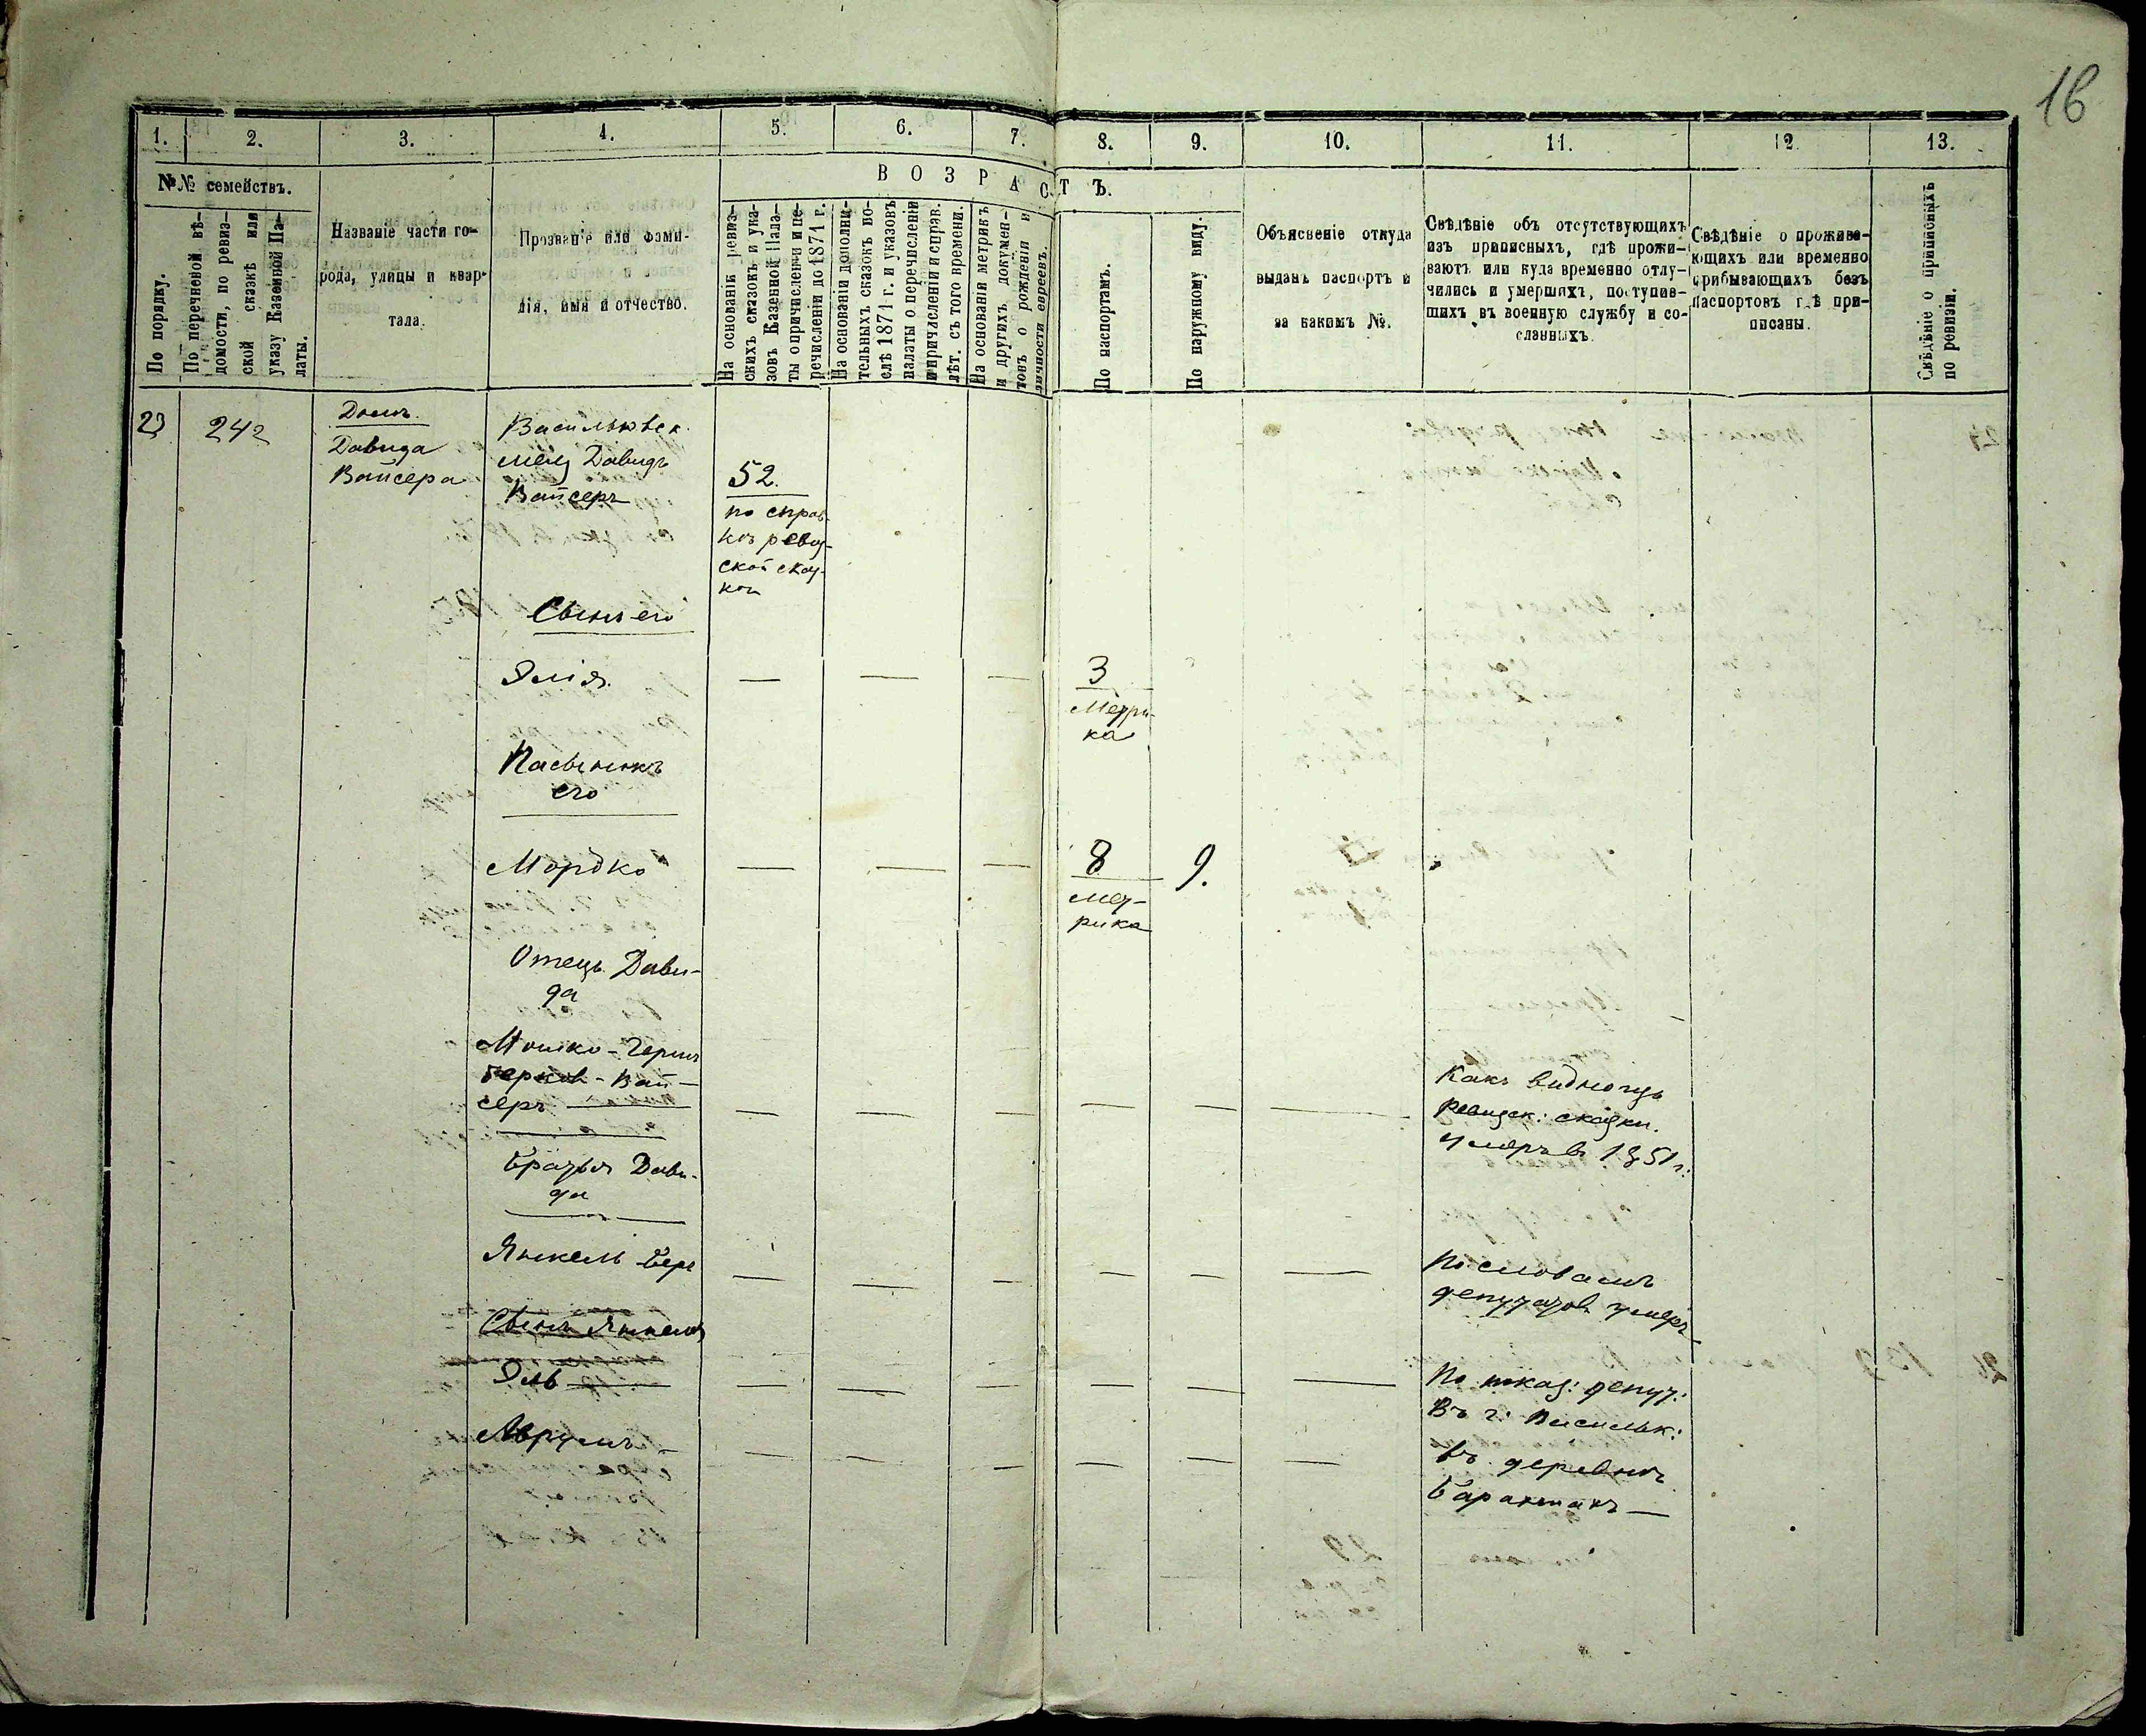 16
1. 2. 3. 4. 5. 6. 7. 8. 9. 10. 11. 12 13.
№№ семействъ.
ВОЗРАСТЪ.
По порядку.
По перечневой вѣ-
домости, по ревиз-
ской сказкѣ или
указу Казенной Па-
латы.
Названіе части го-
рода, улицы и квар-
тала.
Прозваніе или фами-
лія, имя и отчество.
На основаніи ревиз-
скихъ сказокъ и ука-
зовъ Казенной Пала-
ты о причисленіи и пе-
речисленіи до 1871 г.
На основаніи дополни-
тельныхъ сказокъ по-
слѣ 1871 г. и указовъ
палаты о перечисленіи
и причисленіи и справ.
лѣт. съ того времени.
На основаніи метрикъ
и другихъ докумен-
товъ о рожденіи и
личности евреевъ.
По паспортамъ.
По наружному виду.
Объясненіе откуда
выданъ паспортъ и
за какимъ №.
Свѣдѣніе объ отсутствующихъ
изъ приписныхъ, гдѣ прожи-
ваютъ или куда временно отлу-
чились и умершихъ, поступив-
шихъ въ военную службу и со-
сланныхъ.
Свѣдѣніе о прожива-
ющихъ или временно
прибывающихъ безъ
паспортовъ гдѣ при-
писаны.
Свѣдѣніе о приписныхъ
по ревизіи.
23 242
Домъ
Давида
Вайсера
Васильковск.
мещ Давидъ
Вайсеръ
52.
по справ-
кѣ ревиз-
ской сказ-
ки
Сынъ его
Элія. — — —
3
Метри-
ка
Пасынокъ
его
Мордко — — —
8
мет-
рика
9.
Отецъ Дави-
да
Мошко-Герш
Берков-Вай-
серъ — — — — — — —
Какъ видно изъ
ревизск: сказки.
умеръ въ 1851 г.
Братья Дави-
да
Янкель Бер — — — — — —
По словамъ
депутатовъ умеръ
Сынъ Янкеля
Эль — — — — — — —
По показ: депут:
Въ г. Васильк:
Аврумъ — — — — — — —
въ деревнѣ
Барахтахъ —